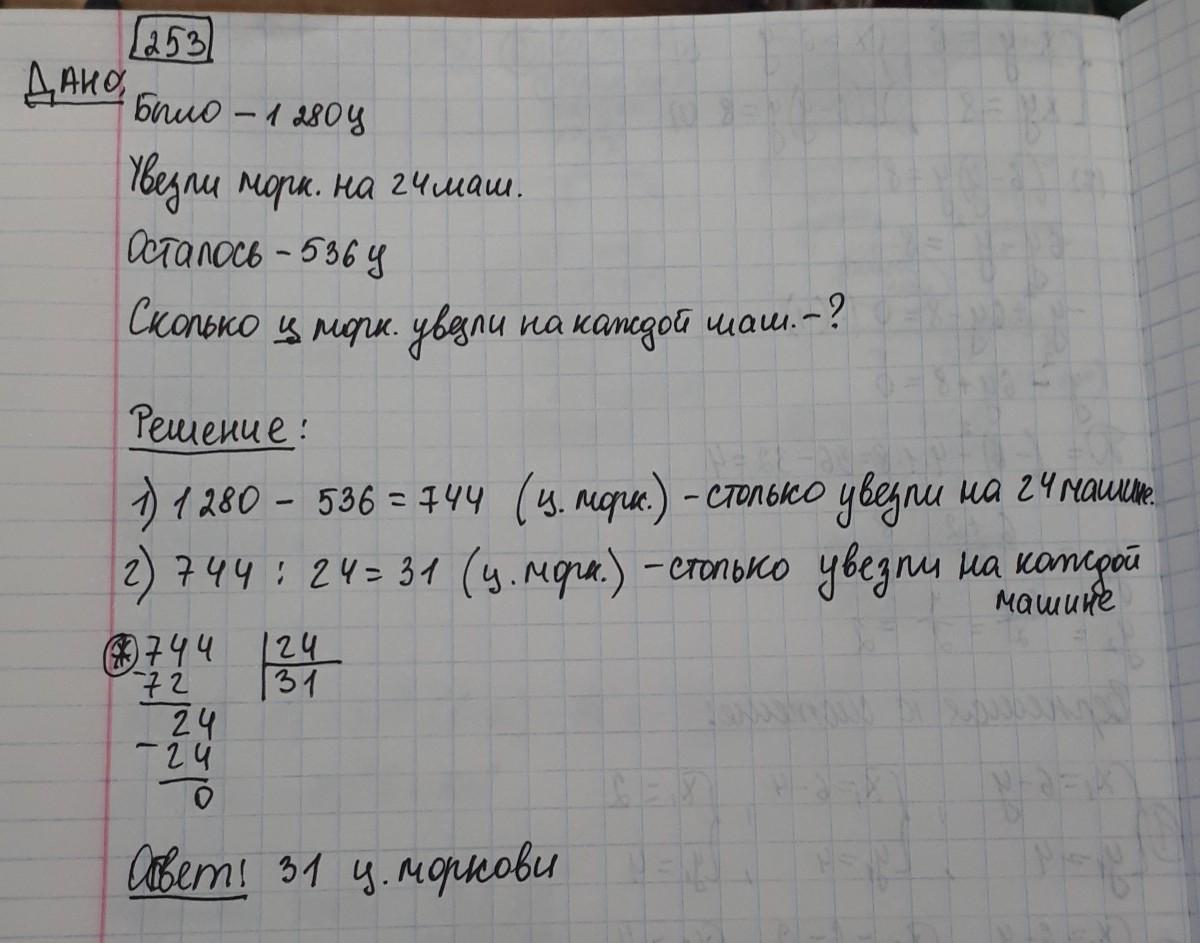 253
ДАНО:
Было – 1 280 ц
Увезли морк. на 24 маш.
Осталось – 536 ц
Сколько ц морк. увезли на каждой маш. – ?
Решение:
1) 1 280 – 536 = 744 (ц. морк.) – столько увезли на 24 машине.
2) 744 : 24 = 31 (ц. морк.) – столько увезли на каждой
машине
* 744 24
– 72 31
24
– 24
0
Ответ: 31 ц. моркови